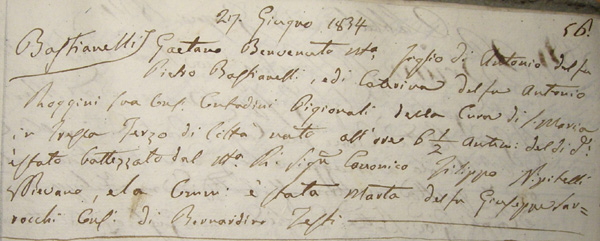 27. Giugno 1834 56.
Bastianelli Gaetano Benvenuto figlio di Antonio del fu
Pietro Bastianelli, e di Caterina del fu Antonio
Roggini sua Conf. Contadini Pigionali della Cura di S. Maria
in Terzo di Città nato all'ore 6 1/2 Antim: del dì d.º
è stato battezzato dal Sigr. Canonico Filippo
Pievano, e la Comm: è stata Marta del fu Giuseppe Sar=
rocchi Conf. di Bernardino Testi